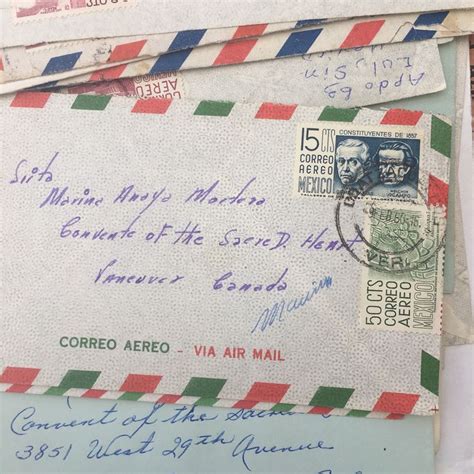 Apdo 63
CORREO
AEREO
15 CTS
CONSTITUYENTES DE 1857
CORREO
AEREO
MEXICO
Srita
Marina Anaya Mortera
Convente of the SacreD. Heart
Vancuver Canada
VER.
50 CTS
CORREO
AEREO
MEXICO
CORREO AEREO - VIA AIR MAIL
Convent of the Sacre
3851 West 29th Avenue